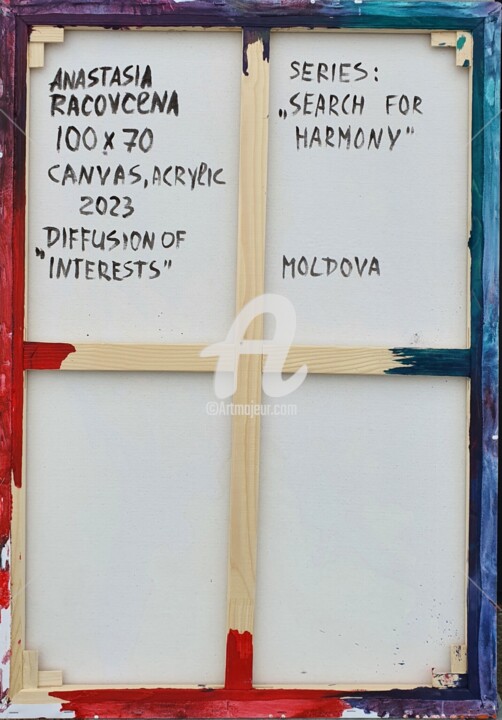 ANASTASIA
RACOVCENA
100 x 70
CANVAS, ACRYLIC
2023
DIFFUSION OF
"INTERESTS"
SERIES:
„SEARCH FOR
HARMONY"
MOLDOVA
©Artmajeur.com